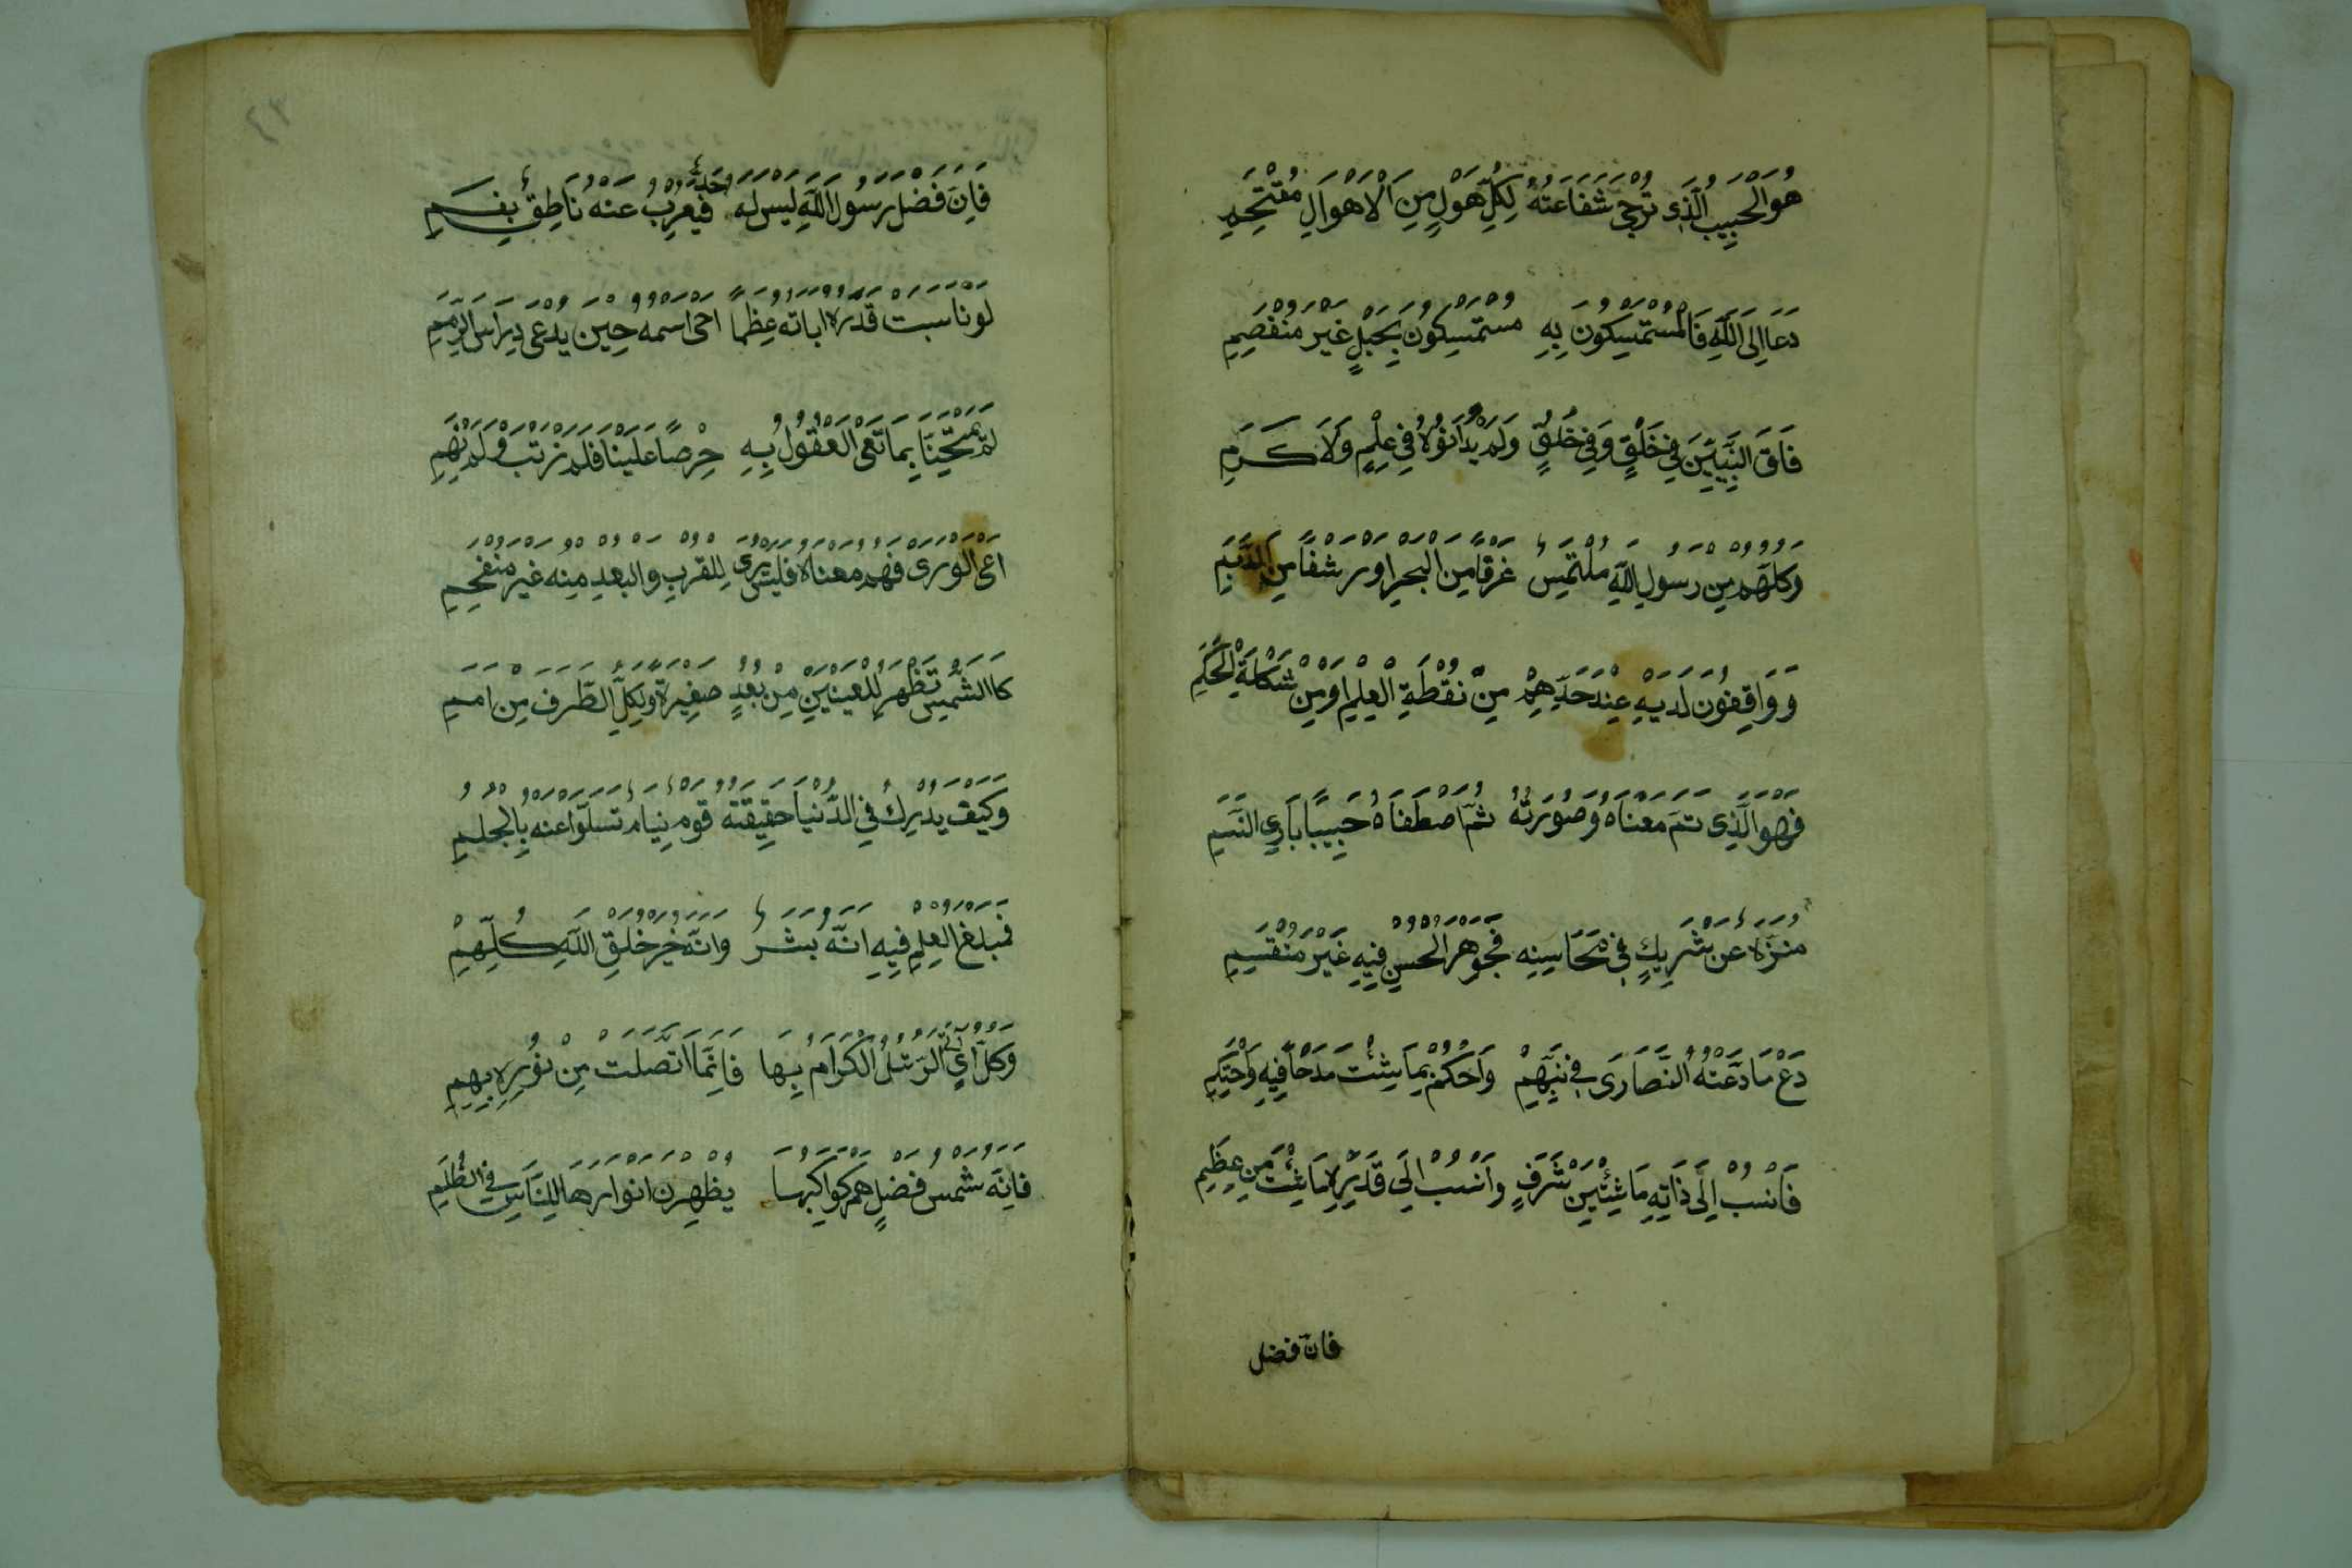 هُوَ الْحَبِيبُ الَّذِي تُرْجَى شَفَاعَتُهُ لِكُلِّ هَوْلٍ مِنَ الْأَهْوَالِ مُقْتَحِمِ
دَعَا إِلَى اللَّهِ فَالْمُسْتَمْسِكُونَ بِهِ مُسْتَمْسِكُونَ بِحَبْلٍ غَيْرِ مُنْفَصِمِ
فَاقَ النَّبِيِّينَ فِي خَلْقٍ وَفِي خُلُقٍ وَلَمْ يُدَانُوهُ فِي عِلْمٍ وَلَا كَرَمِ
وَكُلُّهُمْ مِنْ رَسُولِ اللَّهِ مُلْتَمِسٌ غَرْفًا مِنَ الْبَحْرِ اَوْ رَشْفًا مِنَ الدِّيَمِ
وَوَاقِفُونَ لَدَيْهِ عِنْدَ حَدِّهِمْ مِنْ نُقْطَةِ الْعِلْمِ اَوْ مِنْ شَكْلَةِ الْحِكَمِ
فَهْوَ الَّذِي تَمَّ مَعْنَاهُ وَصُورَتُهُ ثُمَّ اصْطَفَاهُ حَبِيبًا بَارِئُ النَّسَمِ
مُنَزَّهٌ عَنْ شَرِيكٍ فِي مَحَاسِنِهِ فَجَوْهَرُ الْحُسْنِ فِيهِ غَيْرُ مُنْقَسِمِ
دَعْ مَا ادَّعَتْهُ النَّصَارَى فِي نَبِيِّهِمْ وَاحْكُمْ بِمَا شِئْتَ مَدْحًا فِيهِ وَاحْتَكِمِ
فَانْسُبْ اِلَى ذَاتِهِ مَا شِئْتَ مِنْ شَرَفٍ وَانْسُبْ اِلَى قَدْرِهِ مَا شِئْتَ مِنْ عِظَمِ
فان فضل
فَاِنَّ فَضْلَ رَسُولِ اللَّهِ لَيْسَ لَهُ حَدٌّ فَيُعْرِبَ عَنْهُ نَاطِقٌ بِفَمِ
لَوْ نَاسَبَتْ قَدْرَهُ ايَاتُهُ عِظَمًا اَحْيَى اسْمُهُ حِينَ يُدْعَى دَارِسَ الرِّمَمِ
لَمْ يَمْتَحِنَّا بِمَا تَعْيَى الْعُقُولُ بِهِ حِرْصًا عَلَيْنَا فَلَمْ نَرْتَبْ وَلَمْ نَهِمِ
اَعْيَى الْوَرَى فَهْمُ مَعْنَاهُ فَلَيْسَ يُرَى لِلْقُرْبِ وَالْبُعْدِ مِنْهُ غَيْرُ مُنْفَحِمِ
كَالشَّمْسِ تَظْهَرُ لِلْعَيْنَيْنِ مِنْ بُعُدٍ صَغِيرَةً وَتُكِلُّ الطَّرْفَ مِنْ اَمَمِ
وَكَيْفَ يُدْرِكُ فِي الدُّنْيَا حَقِيقَتَهُ قَوْمٌ نِيَامٌ تَسَلَّوْا عَنْهُ بِالْحُلُمِ
فَمَبْلَغُ الْعِلْمِ فِيهِ اَنَّهُ بَشَرٌ وَاَنَّهُ خَيْرُ خَلْقِ اللَّهِ كُلِّهِمِ
وَكُلُّ آيٍ اَتَى الرُّسُلُ الْكِرَامُ بِهَا فَاِنَّمَا اتَّصَلَتْ مِنْ نُورِهِ بِهِمِ
فَاِنَّهُ شَمْسُ فَضْلٍ هُمْ كَوَاكِبُهَا يُظْهِرْنَ اَنْوَارَهَا لِلنَّاسِ فِي الظُّلَمِ